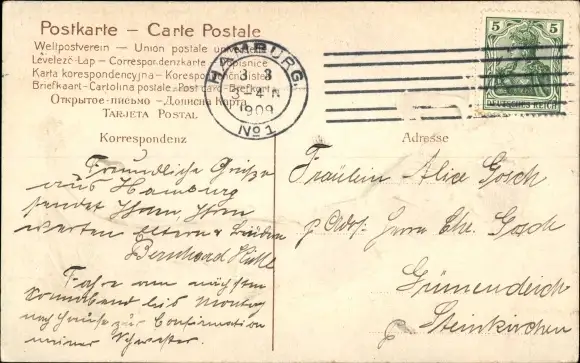 Postkarte – Carte Postale
Weltpostverein – Union postale universelle
Levelező-Lap – Correspondenzkarte – Dopisnice
Karta korespondencyjna – Korespondenční lístek
Briefkaart – Cartolina postale – Post card – Brefkort
Открытое письмо – Дописна Карта
TARJETA POSTAL
Korrespondenz
Adresse
HAMBURG
3 3
3–4 N
1909
No 1
5 5
DEUTSCHES REICH
Freundliche Grüße
aus Hamburg
sendet Ihnen, Ihren
werten Eltern &
Bernhard
Fahre am nächsten
Sonnabend bis Montag
nach Hause zur Confirmation
meiner Schwester.
Fräulein Alice Gosch
p. Adr. Herrn Chr. Gosch
Grünendeich
Steinkirchen